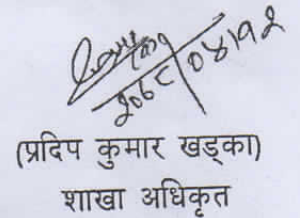 २०६८/०४/१२
(प्रदिप कुमार खड्का)
शाखा अधिकृत